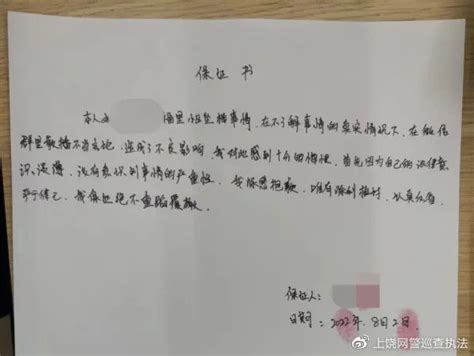 保证书
本人在 因里怛坠楼事情,在不了解事情的真实情况下,在微信
群里散播不当言论,造成了不良影响,我对此感到十分的悔恨,首先因为自己的法律意
识淡薄,没有意识到事情的严重性,我深感抱歉,唯有深刻检讨,认真反省
严于律己,我保证绝不重蹈覆辙。
保证人:
日期:2022年8月2日
@上饶网警巡查执法